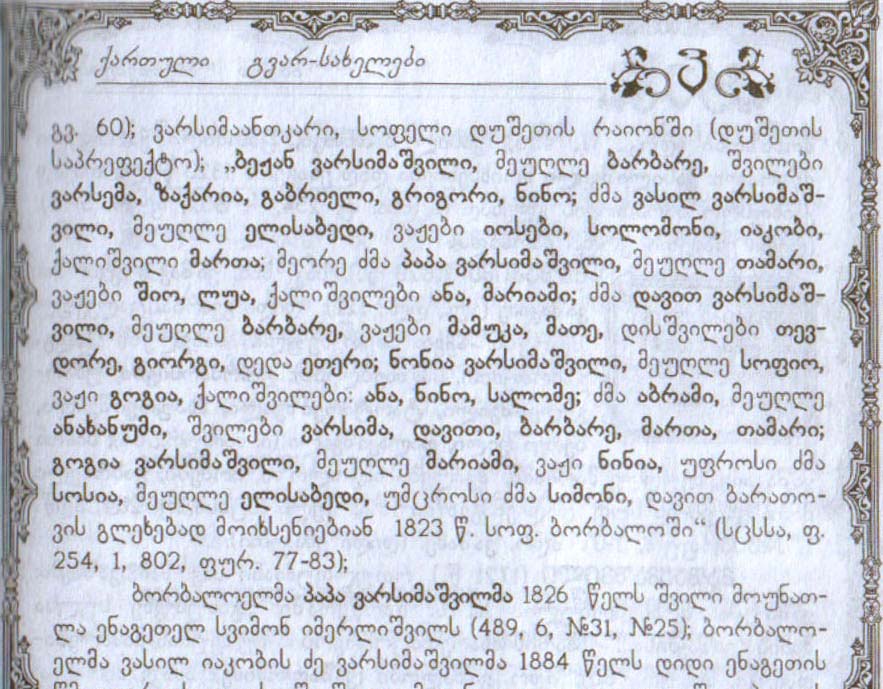 ქართული გვარ-სახელები
ვ
გვ. 60); ვარსიმაანთკარი, სოფელი დუშეთის რაიონში (დუშეთის
საპრეფექტო); „ბეჟან ვარსიმაშვილი, მეუღლე ბარბარე, შვილები
ვარსემა, ზაქარია, გაბრიელი, გრიგორი, ნინო; ძმა ვასილ ვარსიმაშ-
ვილი, მეუღლე ელისაბედი, ვაჟები იოსები, სოლომონი, იაკობი,
ქალიშვილი მართა; მეორე ძმა პაპა ვარსიმაშვილი, მეუღლე თამარი,
ვაჟები შიო, ლუა, ქალიშვილები ანა, მარიამი; ძმა დავით ვარსიმაშ-
ვილი, მეუღლე ბარბარე, ვაჟები მამუკა, მათე, დისშვილები თევ-
დორე, გიორგი, დედა ეთერი; ნონია ვარსიმაშვილი, მეუღლე სოფიო,
ვაჟი გოგია, ქალიშვილები: ანა, ნინო, სალომე; ძმა აბრამი, მეუღლე
ანახანუმი, შვილები ვარსიმა, დავითი, ბარბარე, მართა, თამარი;
გოგია ვარსიმაშვილი, მეუღლე მარიამი, ვაჟი ნინია, უფროსი ძმა
სოსია, მეუღლე ელისაბედი, უმცროსი ძმა სიმონი, დავით ბარათო-
ვის გლეხებად მოიხსენიებიან 1823 წ. სოფ. ბორბალოში“ (სცსსა, ფ.
254, 1, 802, ფურ. 77-83);
ბორბალოელმა პაპა ვარსიმაშვილმა 1826 წელს შვილი მოუნათ-
ლა ენაგეთელ სვიმონ იმერლიშვილს (489, 6, №31, №25); ბორბალო-
ელმა ვასილ იაკობის ძე ვარსიმაშვილმა 1884 წელს დიდი ენაგეთის